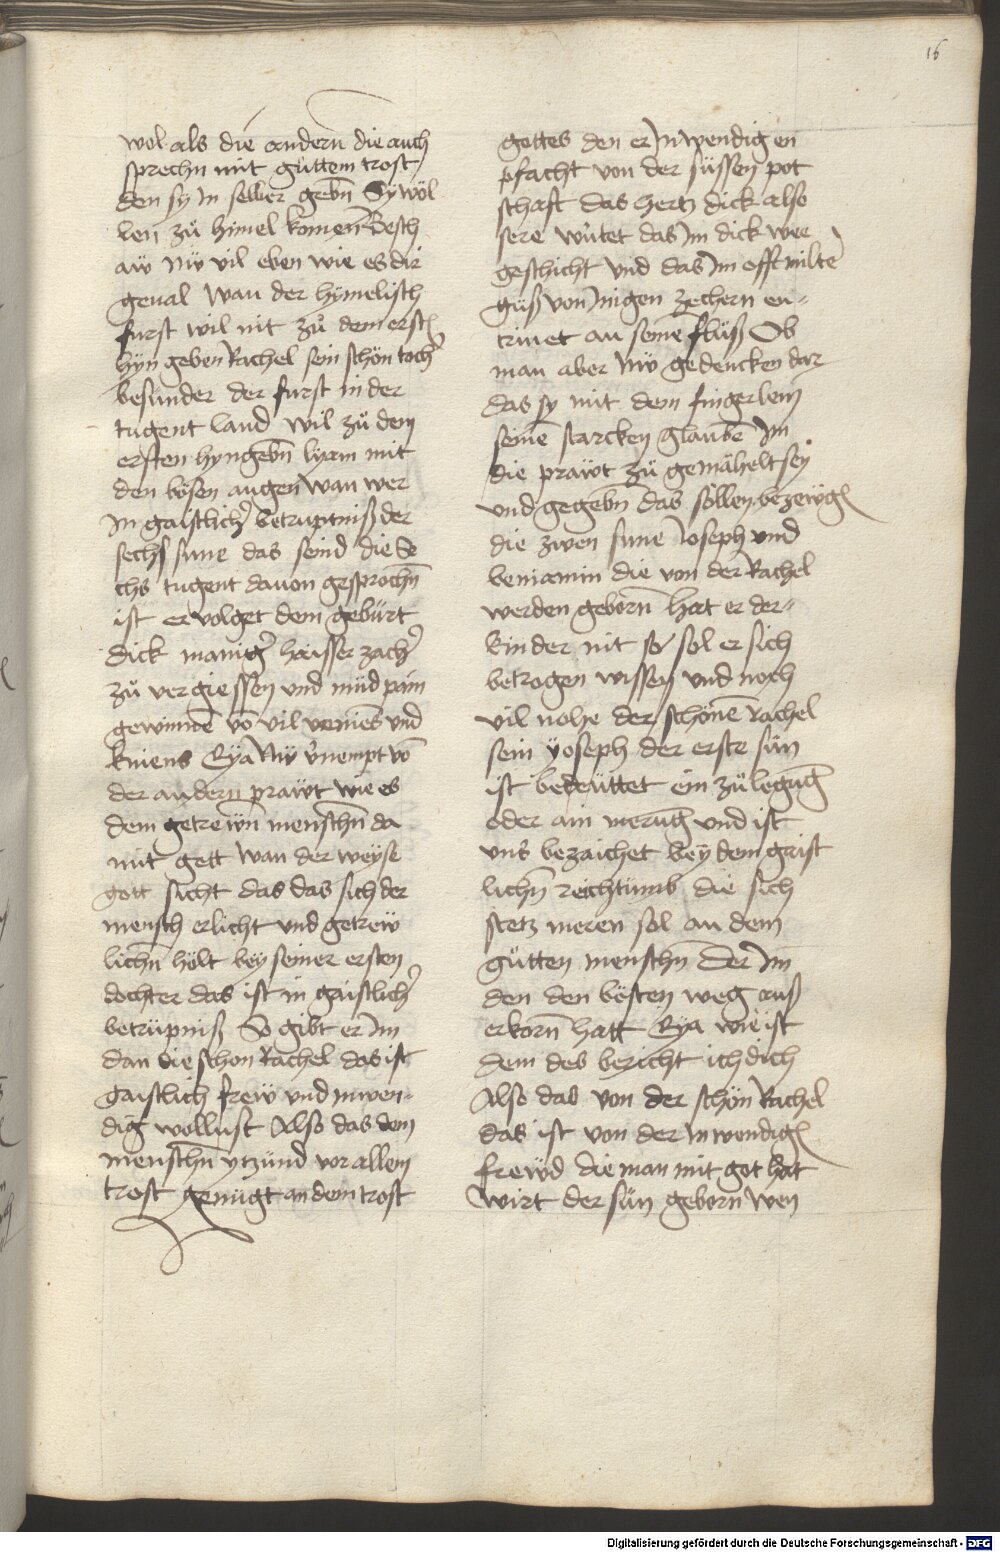 16
wol als die andern die auch
sprechn mit güttem trost
den sy in selber gebn Sy wöl
len zů himel komen Besch
aw nw vil eben wie es dir
geual Wan der hymelisch
furst wil nit zů dem erstē
hyn geben Rachel sein schön tocht̛
besunder der furst in der
tugent land wil zů dem
ersten hyngebn lyam mit
den bösen augen wan wer
in gaistlich̛ betruptniß der
sechs sune das seind die se
chs tugent dauon gesprochn̄
ist er volget dem gebürt
dick manig̛ haisser zach̛
zů vergiessen und müd pein
gewinnē vō vil venies und
kniens Eya Nw v̛nempt vō
der andern präwt wie es
dem getrewn menschn̄ da
mit gett wan der weyse
gott sicht das das sich der
mensch erlicht und getrew
lichn̄ hölt bey seiner ersten
dochter das ist in gaistlich̛
betrüpniß So gibt er im
dan die schon Rachel das ist
gaistlich frew und inwen-
dig wollust Also das dem
menschn̄ ytzund vor allem
trost genügt an dem trost
gottes den er Inwendig en
pfacht von der süssen pot
schaft das hertz dick also
sere wůtet das im dick wee
geschicht und das im offt milte
güß von inigen zechern en-
trinet an seinē fluß Ob
man aber nw gedencken dar
das sy mit dem fingerlein
seinē starcken glaubē im
die präwt zů gemähelt sey
und gegebn̄ das söllen bezewgē
die zwen sune Ioseph und
beniamin die von der Rachel
werden geborn̄ hat er der-
kinder nit so sol er sich
betrogen wissen und noch
vil nohe der schönē Rachel
sein yoseph der erste sün
ist bedeüttet ein zůlegūg
oder ain merūg und ist
uns bezaichet bey dem gaist
lichn̄ reichtumb die sich
stetz meren sol an dem
gůtten menschn̄ Der im
den den besten weg auß
erkorn̄ hatt Eya wie ist
dem des bericht ich dich
Also das von der schön Rachel
das ist von der inwendigē
frewd die man mit got hat
wirt der sün geborn̄ wen
Digitalisierung gefördert durch die Deutsche Forschungsgemeinschaft - DFG